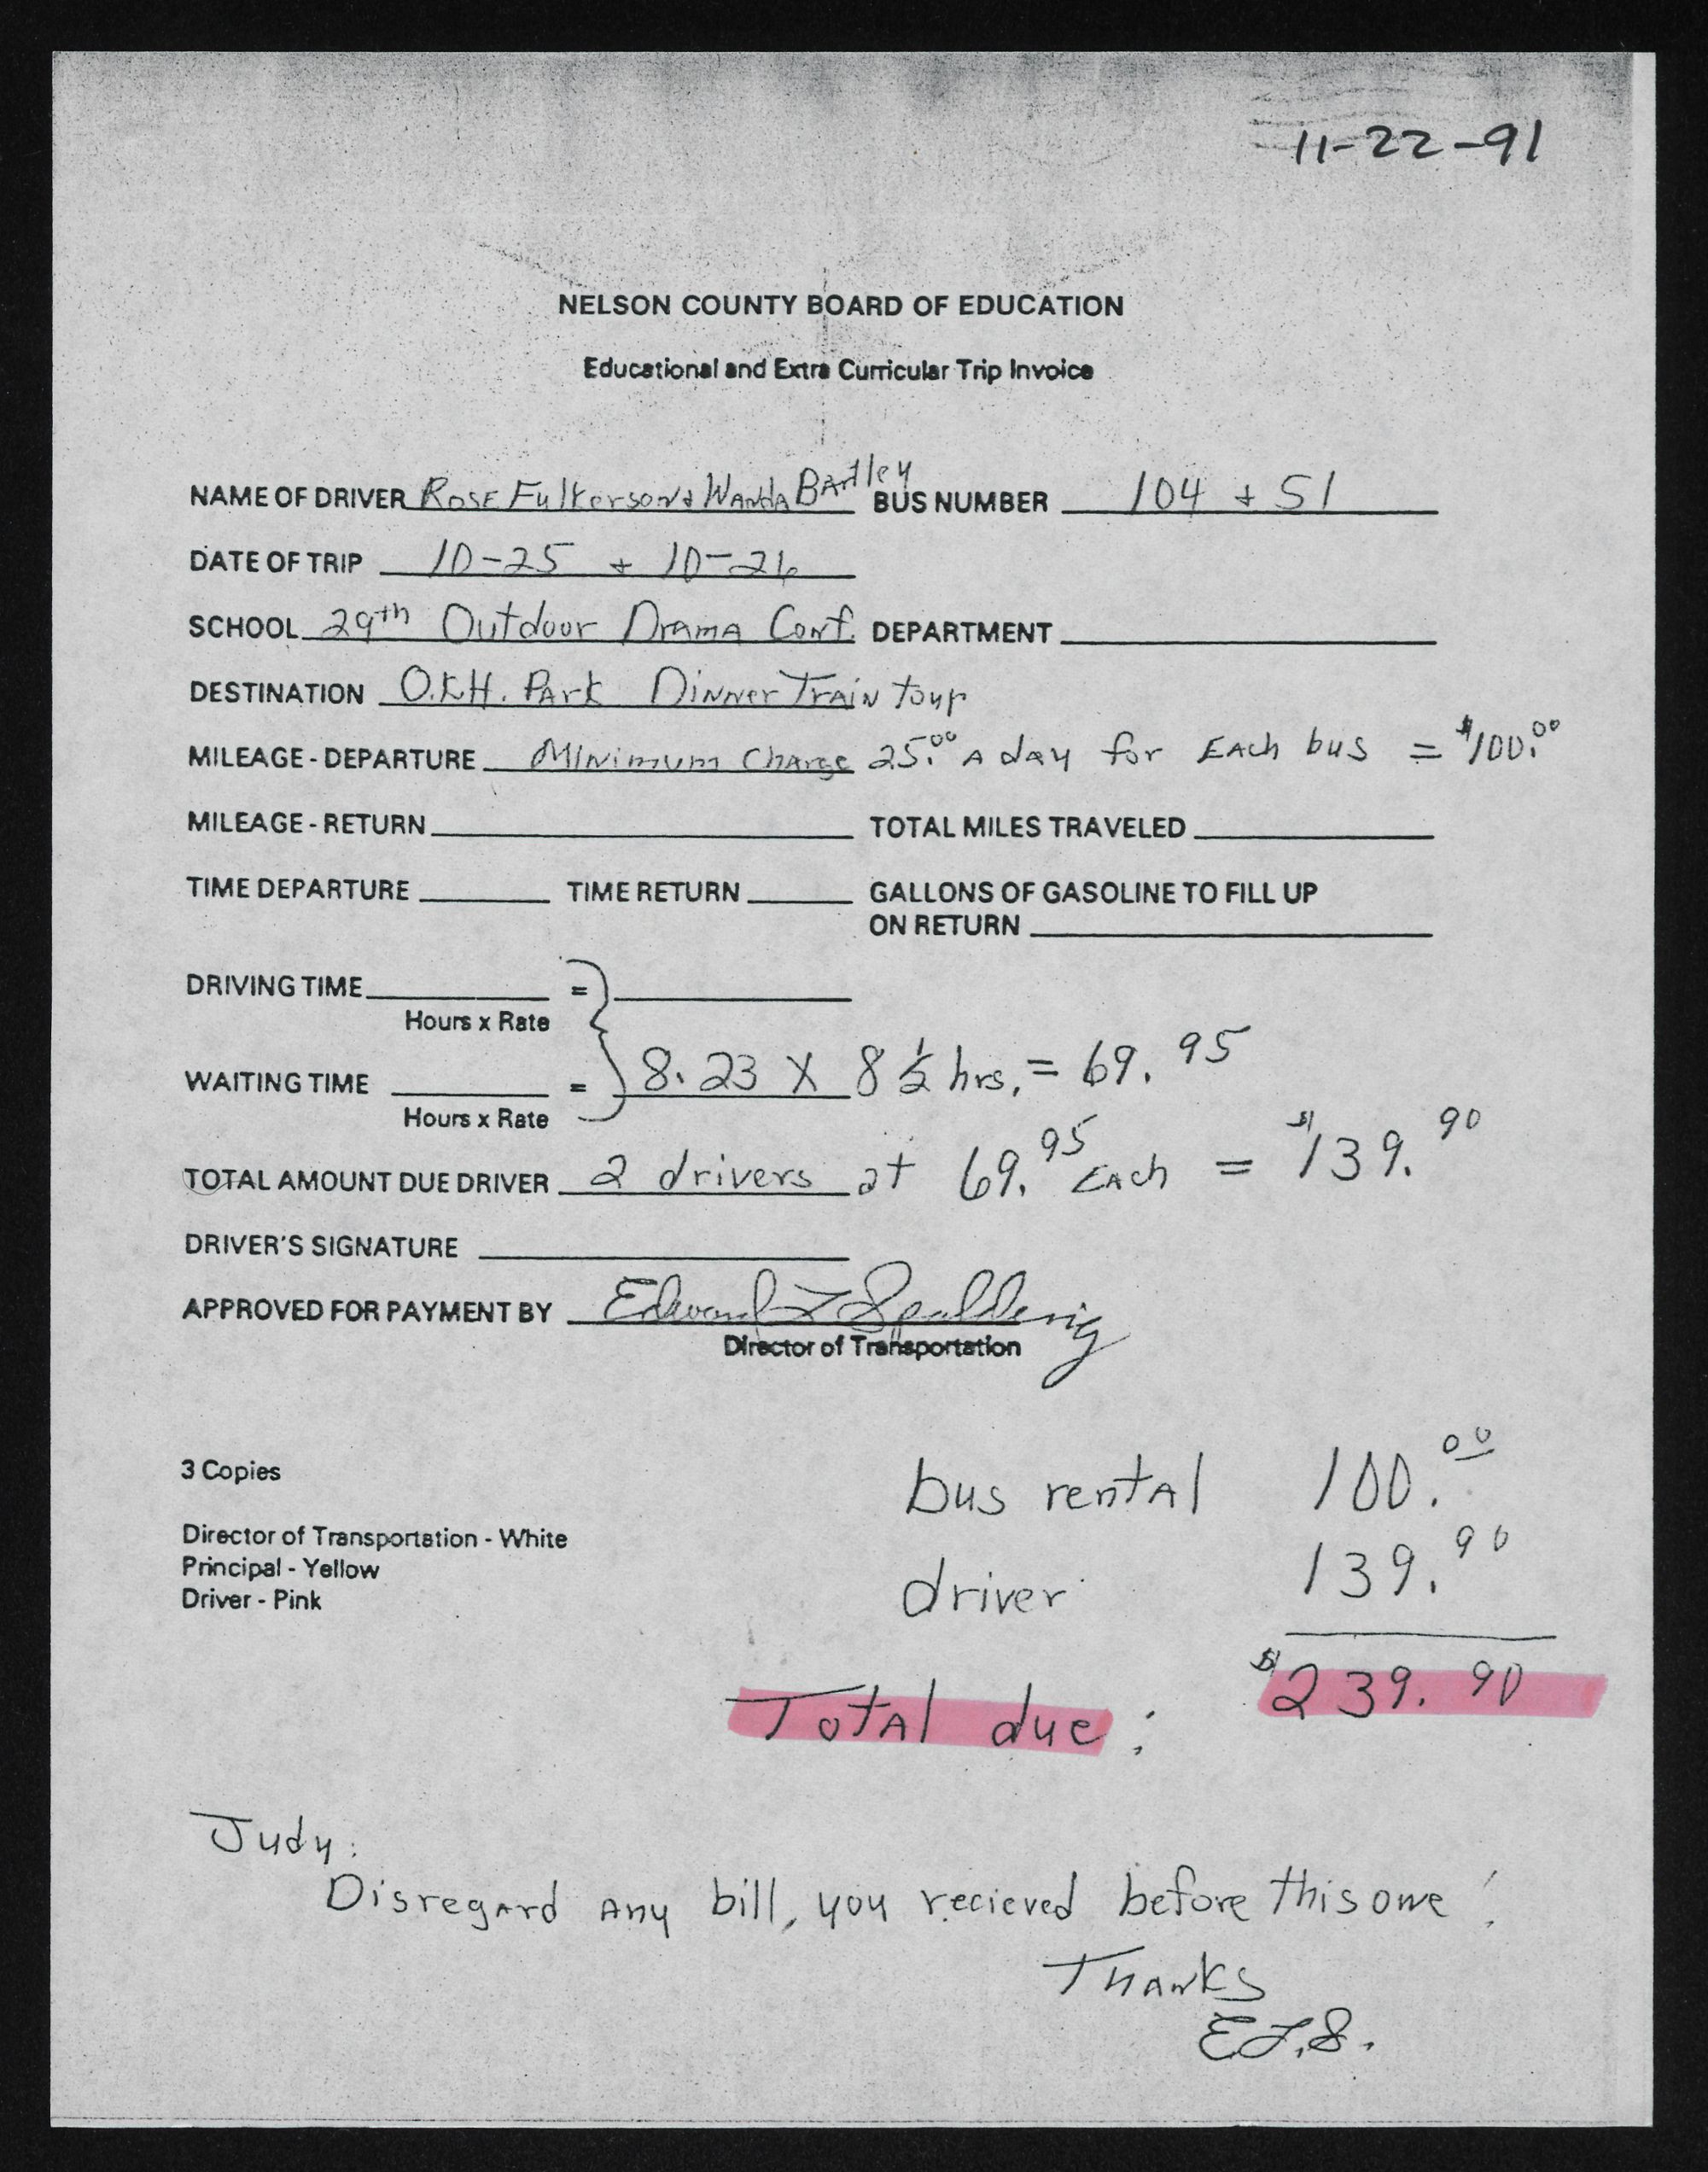 11-22-91
NELSON COUNTY BOARD OF EDUCATION
Educational and Extra Curricular Trip Invoice
NAME OF DRIVER Rose Fulkerson & Wanda Bartley BUS NUMBER 104 + 51
DATE OF TRIP 10-25 + 10-26
SCHOOL 29th Outdoor Drama Conf. DEPARTMENT
DESTINATION O.K.H. Park Dinner Train tour
MILEAGE - DEPARTURE Minimum Charge 25.00 A day for Each bus = $100.00
MILEAGE - RETURN TOTAL MILES TRAVELED
TIME DEPARTURE TIME RETURN GALLONS OF GASOLINE TO FILL UP
ON RETURN
DRIVING TIME =
Hours x Rate
WAITING TIME = 8.23 X 8 ½ hrs. = 69.95
Hours x Rate
TOTAL AMOUNT DUE DRIVER 2 drivers at 69.95 Each = $139.90
DRIVER'S SIGNATURE
APPROVED FOR PAYMENT BY Edward L Spalding
Director of Transportation
3 Copies
Director of Transportation - White
Principal - Yellow
Driver - Pink
bus rental 100.00
driver 139.90
Total due: $239.90
Judy:
Disregard Any bill, you recieved before this one!
Thanks
E.L.S.